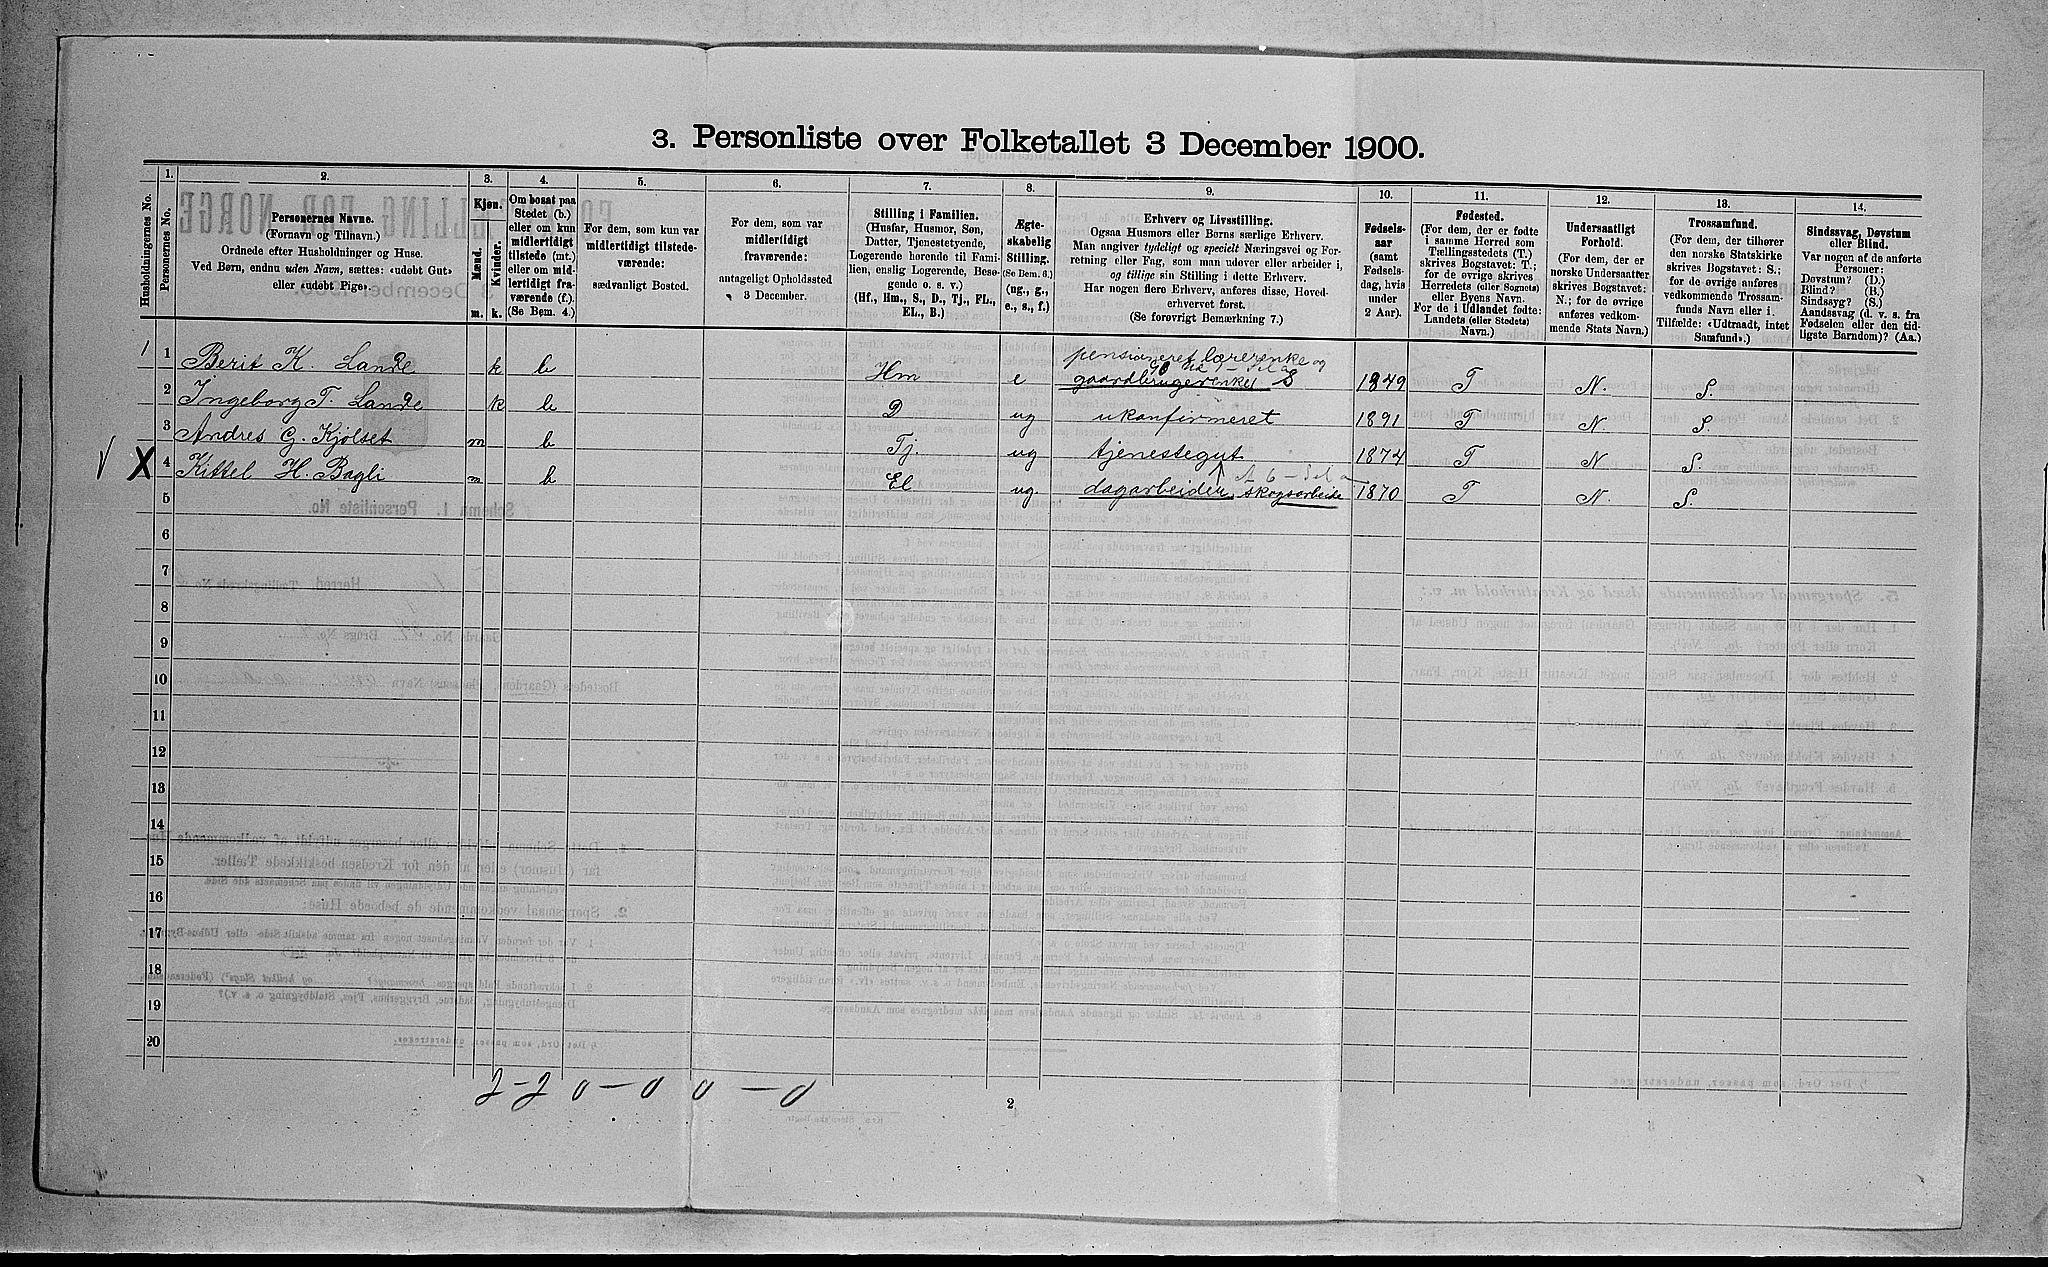 3. Personliste over Folketallet 3 December 1900.
Husholdningernes No.
1.
Personernes No.
2.
Personernes Navne.
(Fornavn og Tilnavn.)
Ordnede efter Husholdninger og Huse.
Ved Børn, endnu uden Navn, sættes: «udøbt Gut»
eller «udøbt Pige».
3.
Kjøn.
Mænd.
Kvinder.
m.
k.
4.
Om bosat paa
Stedet (b.)
eller om kun
midlertidigt
tilstede (mt.)
eller om mid-
lertidigt fra-
værende (f.).
(Se Bem. 4.)
5.
For dem, som kun var
midlertidigt tilstede-
værende:
sædvanligt Bosted.
6.
For dem, som var
midlertidigt
fraværende:
antageligt Opholdssted
3 December.
7.
Stilling i Familien.
(Husfar, Husmor, Søn,
Datter, Tjenestetyende,
Logerende hørende til Fami-
lien, enslig Logerende, Besø-
gende o. s. v.)
(Hf., Hm., S., D., Tj., FL.,
EL., B.)
8.
Ægte-
skabelig
Stilling.
(Se Bem. 6.)
(ug., g.,
e., s., f.)
9.
Erhverv og Livsstilling.
Ogsaa Husmors eller Børns særlige Erhverv.
Man angiver tydeligt og specielt Næringsvei og For-
retning eller Fag, som man udøver eller arbeider i,
og tillige sin Stilling i dette Erhverv.
Har nogen flere Erhverv, anføres disse, Hoved-
erhvervet først.
(Se forøvrigt Bemærkning 7.)
10.
Fødsels-
aar
(samt
Fødsels-
dag, hvis
under
2 Aar).
11.
Fødested.
(For dem, der er fødte
i samme Herred som
Tællingsstedets (T.)
skrives Bogstavet: T.;
for de øvrige skrives
Herredets (eller Sognets)
eller Byens Navn.
For de i Udlandet fødte:
Landets (eller Stedets)
Navn.)
12.
Undersaatligt
Forhold.
(For dem, der er
norske Undersaatter
skrives Bogstavet:
N.; for de øvrige
anføres vedkom-
mende Stats Navn.)
13.
Trossamfund.
(For dem, der tilhører
den norske Statskirke
skrives Bogstavet: S.;
for de øvrige anføres
vedkommende Trossam-
funds Navn eller i
Tilfælde: «Udtraadt, intet
Samfund».)
14.
Sindssvag, Døvstum
eller Blind.
Var nogen af de anførte
Personer:
Døvstum? (D.)
Blind? (B.)
Sindssyg? (S.)
Aandssvag (d. v. s. fra
Fødselen eller den tid-
ligste Barndom)? (Aa.)
pensioneret lærerenke og
1 1 Berit K. Lande k b Hm e gaardbrugerenke S 1849 T N. S.
2 Ingeborg T. Lande k b D ug ukonfirmeret 1891 T N S.
3 Andres G. Kjølset m b Tj. ug tjenestegut 1874 T N S.
X 4 Kittel H. Bagli m b El ug. dagarbeider, skogsarbeide 1870 T N. S.
5
6
7
8
9
10
11
12
13
14
15
16
17
18
19
20
2 – 2 0 – 0 0 – 0
2